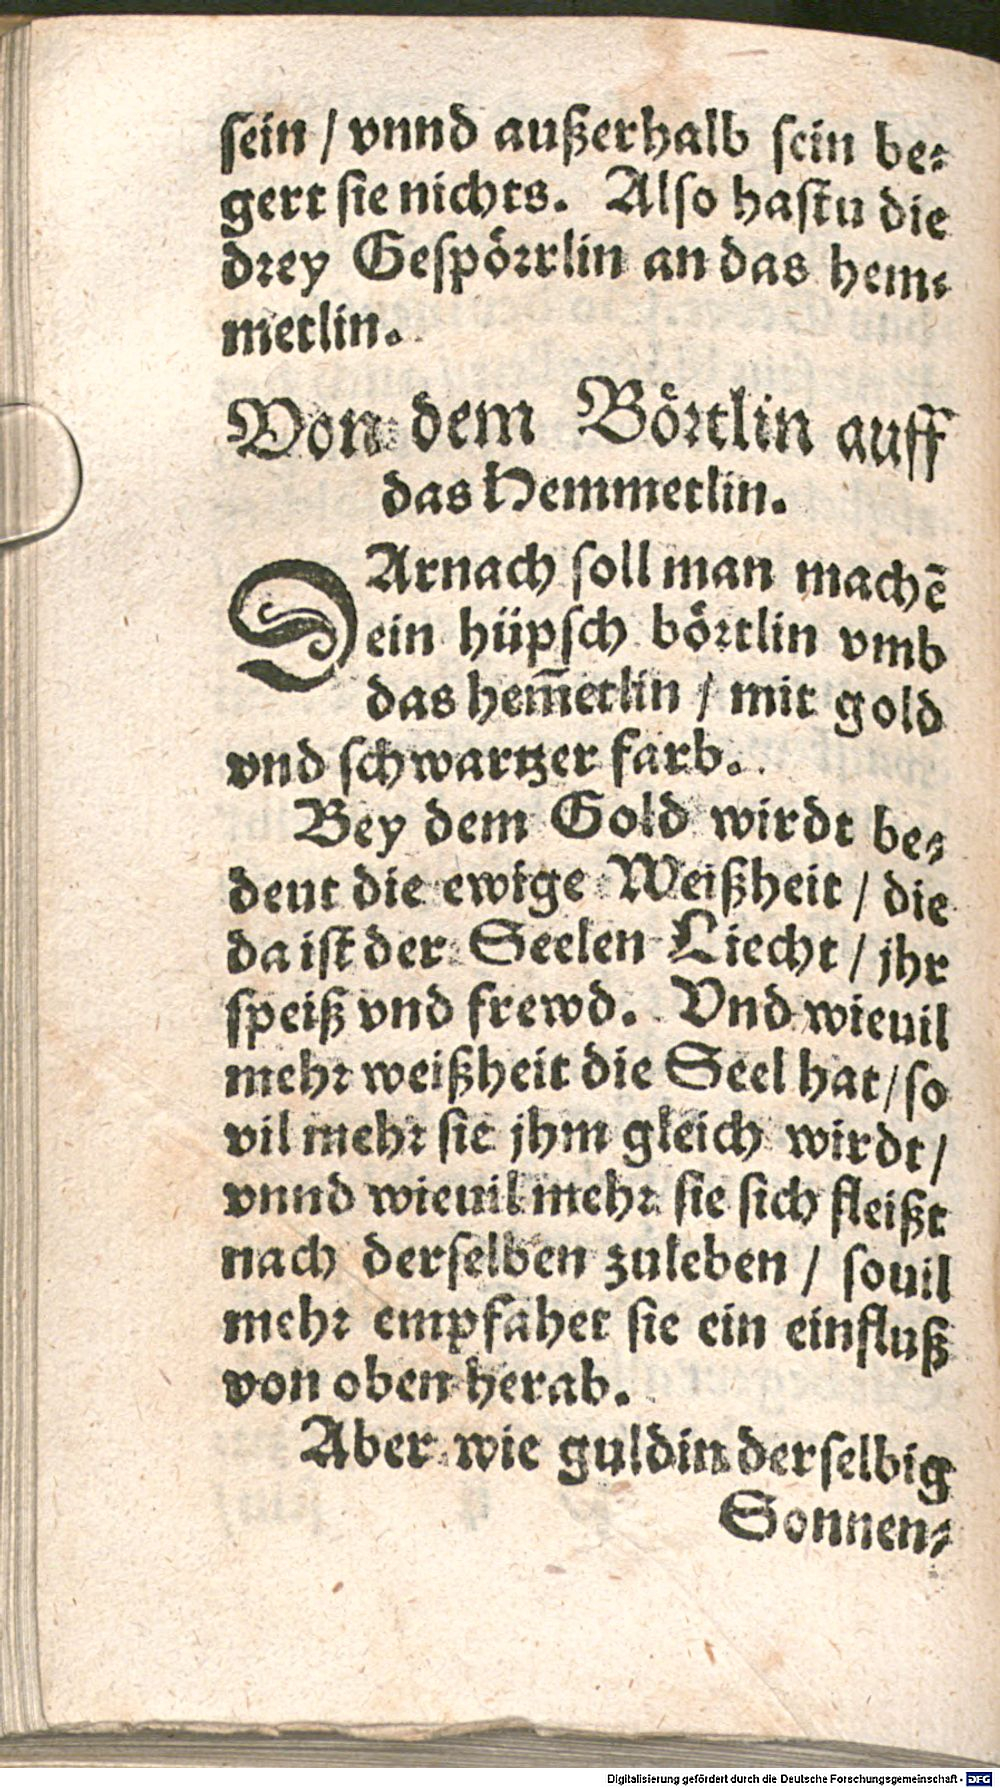 sein / vnnd außerhalb sein be-
gert sie nichts. Also hastu die
drey Gespörrlin an das hem-
metlin.
Von dem Börtlin auff
das Hemmetlin.
DArnach soll man machē
ein hüpsch börtlin vmb
das hem̄etlin / mit gold
vnd schwartzer farb.
Bey dem Gold wirdt be-
deut die ewige Weißheit / die
da ist der Seelen Liecht / jhr
speiß vnd frewd. Vnd wieuil
mehr weißheit die Seel hat / so
vil mehr sie jhm gleich wirdt /
vnnd wieuil mehr sie sich fleißt
nach derselben zuleben / souil
mehr empfahet sie ein einfluß
von oben herab.
Aber wie guldin derselbig
Sonnen-
Digitalisierung gefördert durch die Deutsche Forschungsgemeinschaft - DFG